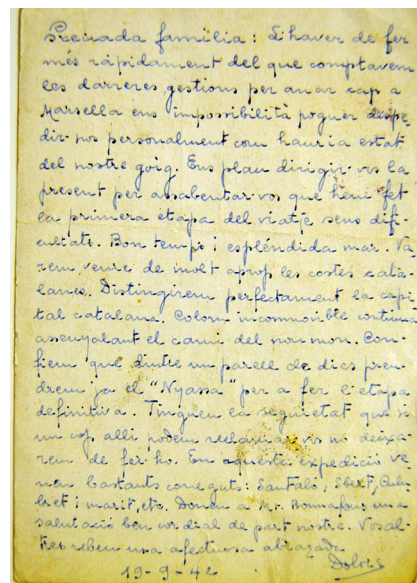 Preuada familia: L'haver de fer
més ràpidament del que comptavem
les darreres gestions per anar cap a
Marsella ens impossibilità poguer despe
dir-nos personalment com hauria estat
del nostre goig. Ens plau dirigir-vos la
present per assabentar-vos que hem fet
la primera etapa del viatje sens difi
cultats. Bon temps i espléndida mar. Va
rem veure de molt aprop les costes cata-
lanes. Distingirem perfectament la capi
tal catalana. Colom incommovible continua
assenyalant el camí del nou mon. Con-
fiem que dintre un parell de dies pren-
drem ja el "Nyassa" per a fer l'etapa
definitiva. Tingueu la seguretat que si
un cop alli podem reclamar-vos no deixa-
rem de fer-ho. En aquesta expedició ve
nen bastants coneguts: Santaló, Sbert,
bret i marit, etc. Doneu a Mr. Bonnafous una
salutació ben cordial de part nostre. Vosal-
tres rebeu una afectuosa abraçada
Dolors
19-9-42